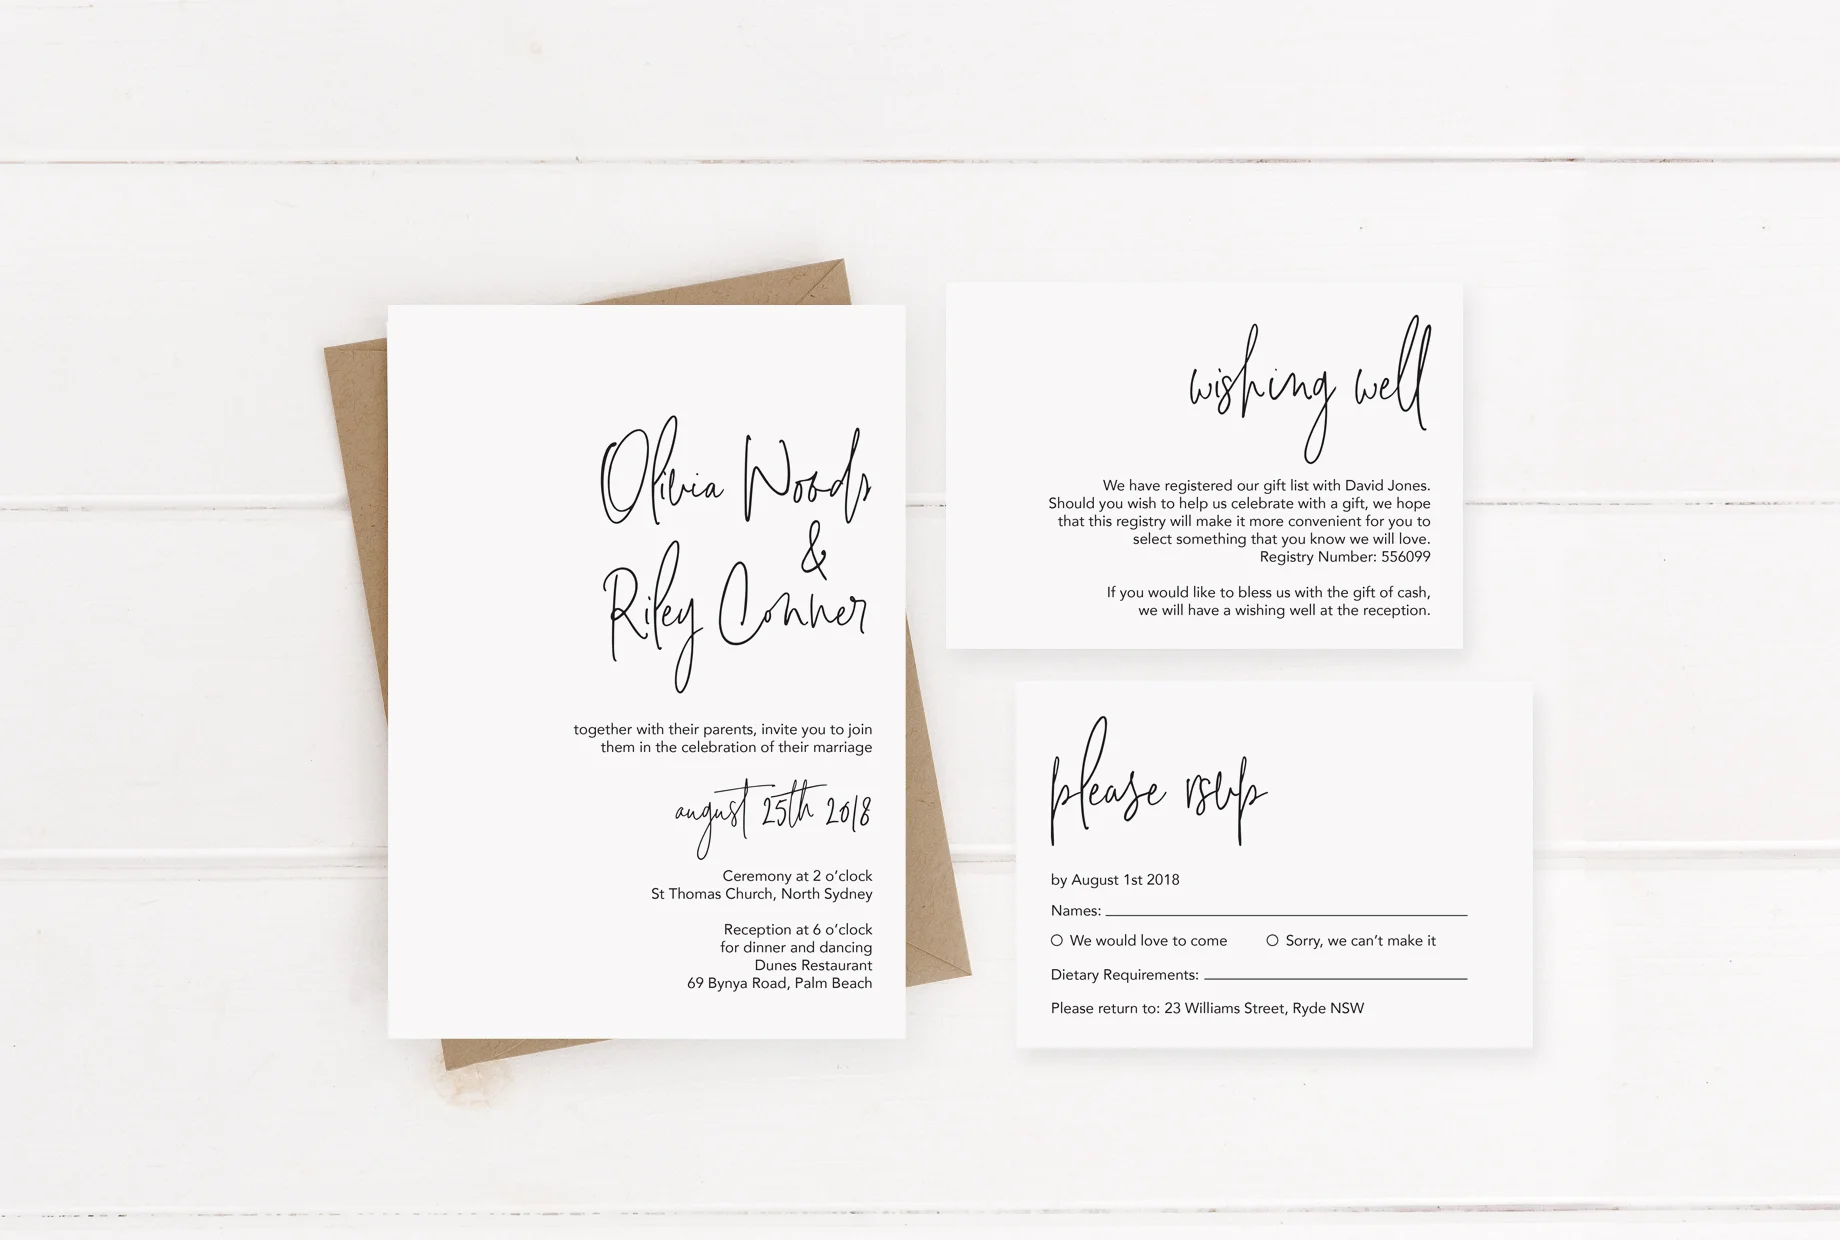 Olivia Woods
&
Riley Conner
together with their parents, invite you to join
them in the celebration of their marriage
august 25th 2018
Ceremony at 2 o’clock
St Thomas Church, North Sydney
Reception at 6 o’clock
for dinner and dancing
Dunes Restaurant
69 Bynya Road, Palm Beach
wishing well
We have registered our gift list with David Jones.
Should you wish to help us celebrate with a gift, we hope
that this registry will make it more convenient for you to
select something that you know we will love.
Registry Number: 556099
If you would like to bless us with the gift of cash,
we will have a wishing well at the reception.
please rsvp
by August 1st 2018
Names:
We would love to come
Sorry, we can’t make it
Dietary Requirements:
Please return to: 23 Williams Street, Ryde NSW